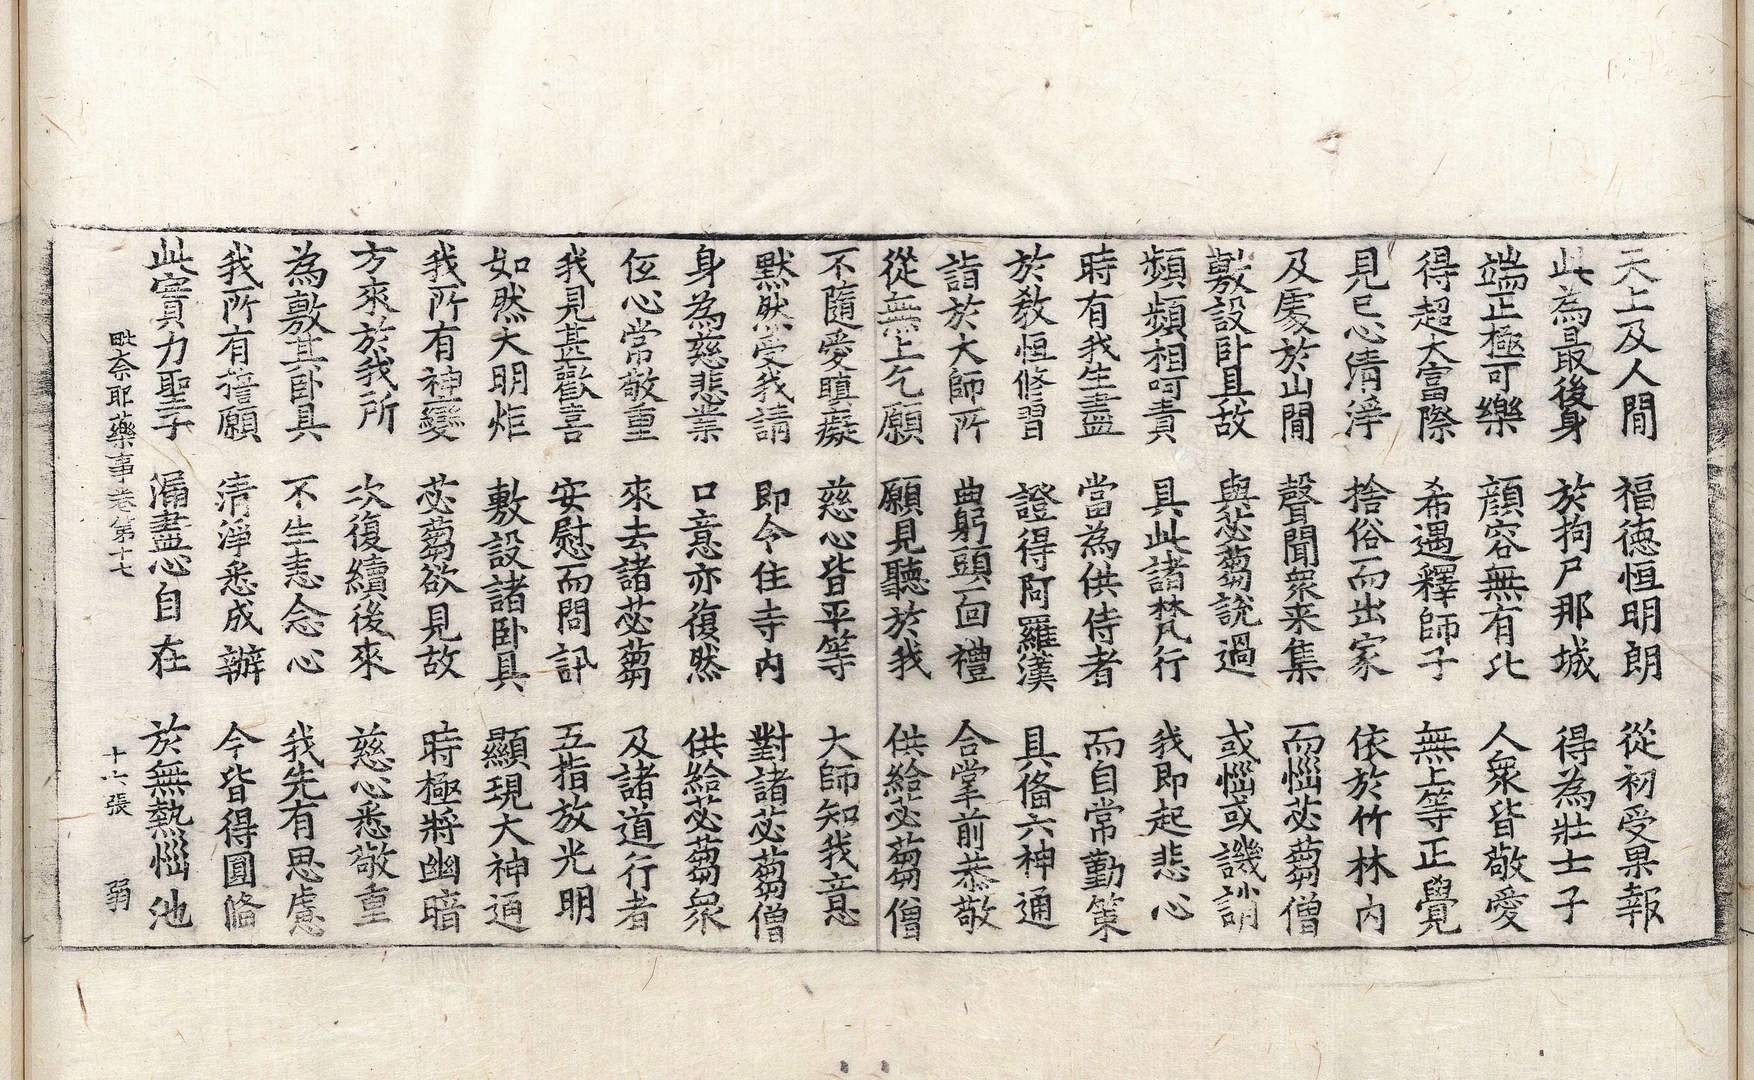 天上及人間　福德恒明朗　從初受果報
此為最後身　於拘尸那城　得為壯士子
端正極可樂　顔容無有比　人衆皆敬愛
得超大富際　希遇釋師子　無上等正覺
見已心清淨　捨俗而出家　依於竹林内
及處於山間　聲聞衆来集　而惱苾蒭僧
敷設卧具故　與苾蒭說過　或惱或譏誚
頻頻相呵責　具此諸梵行　我即起悲心
時有我生盡　當為供侍者　而自常勤策
於教恒修習　證得阿羅漢　具俻六神通
詣於大師所　曲躬頭面禮　合掌前恭敬
從無上乞願　願見聽於我　供給苾蒭僧
不隨愛瞋癡　慈心皆平等　大師知我意
默然受我請　即今住寺内　對諸苾蒭僧
身為慈悲業　口意亦復然　供給苾蒭衆
位心常敬重　來去諸苾蒭　及諸道行者
我見甚歡喜　安慰而問訊　五指放光明
如然大明炬　敷設諸卧具　顯現大神通
我所有神變　苾蒭欲見故　時極將幽暗
方來於我所　次復續後來　慈心悉敬重
為敷其卧具　不生恚念心　我先有思慮
我所有誓願　清淨悉成辦　今皆得圓俻
此實力聖子　漏盡心自在　於無熱惱池
毗奈耶藥事卷第十七　十六張　弱